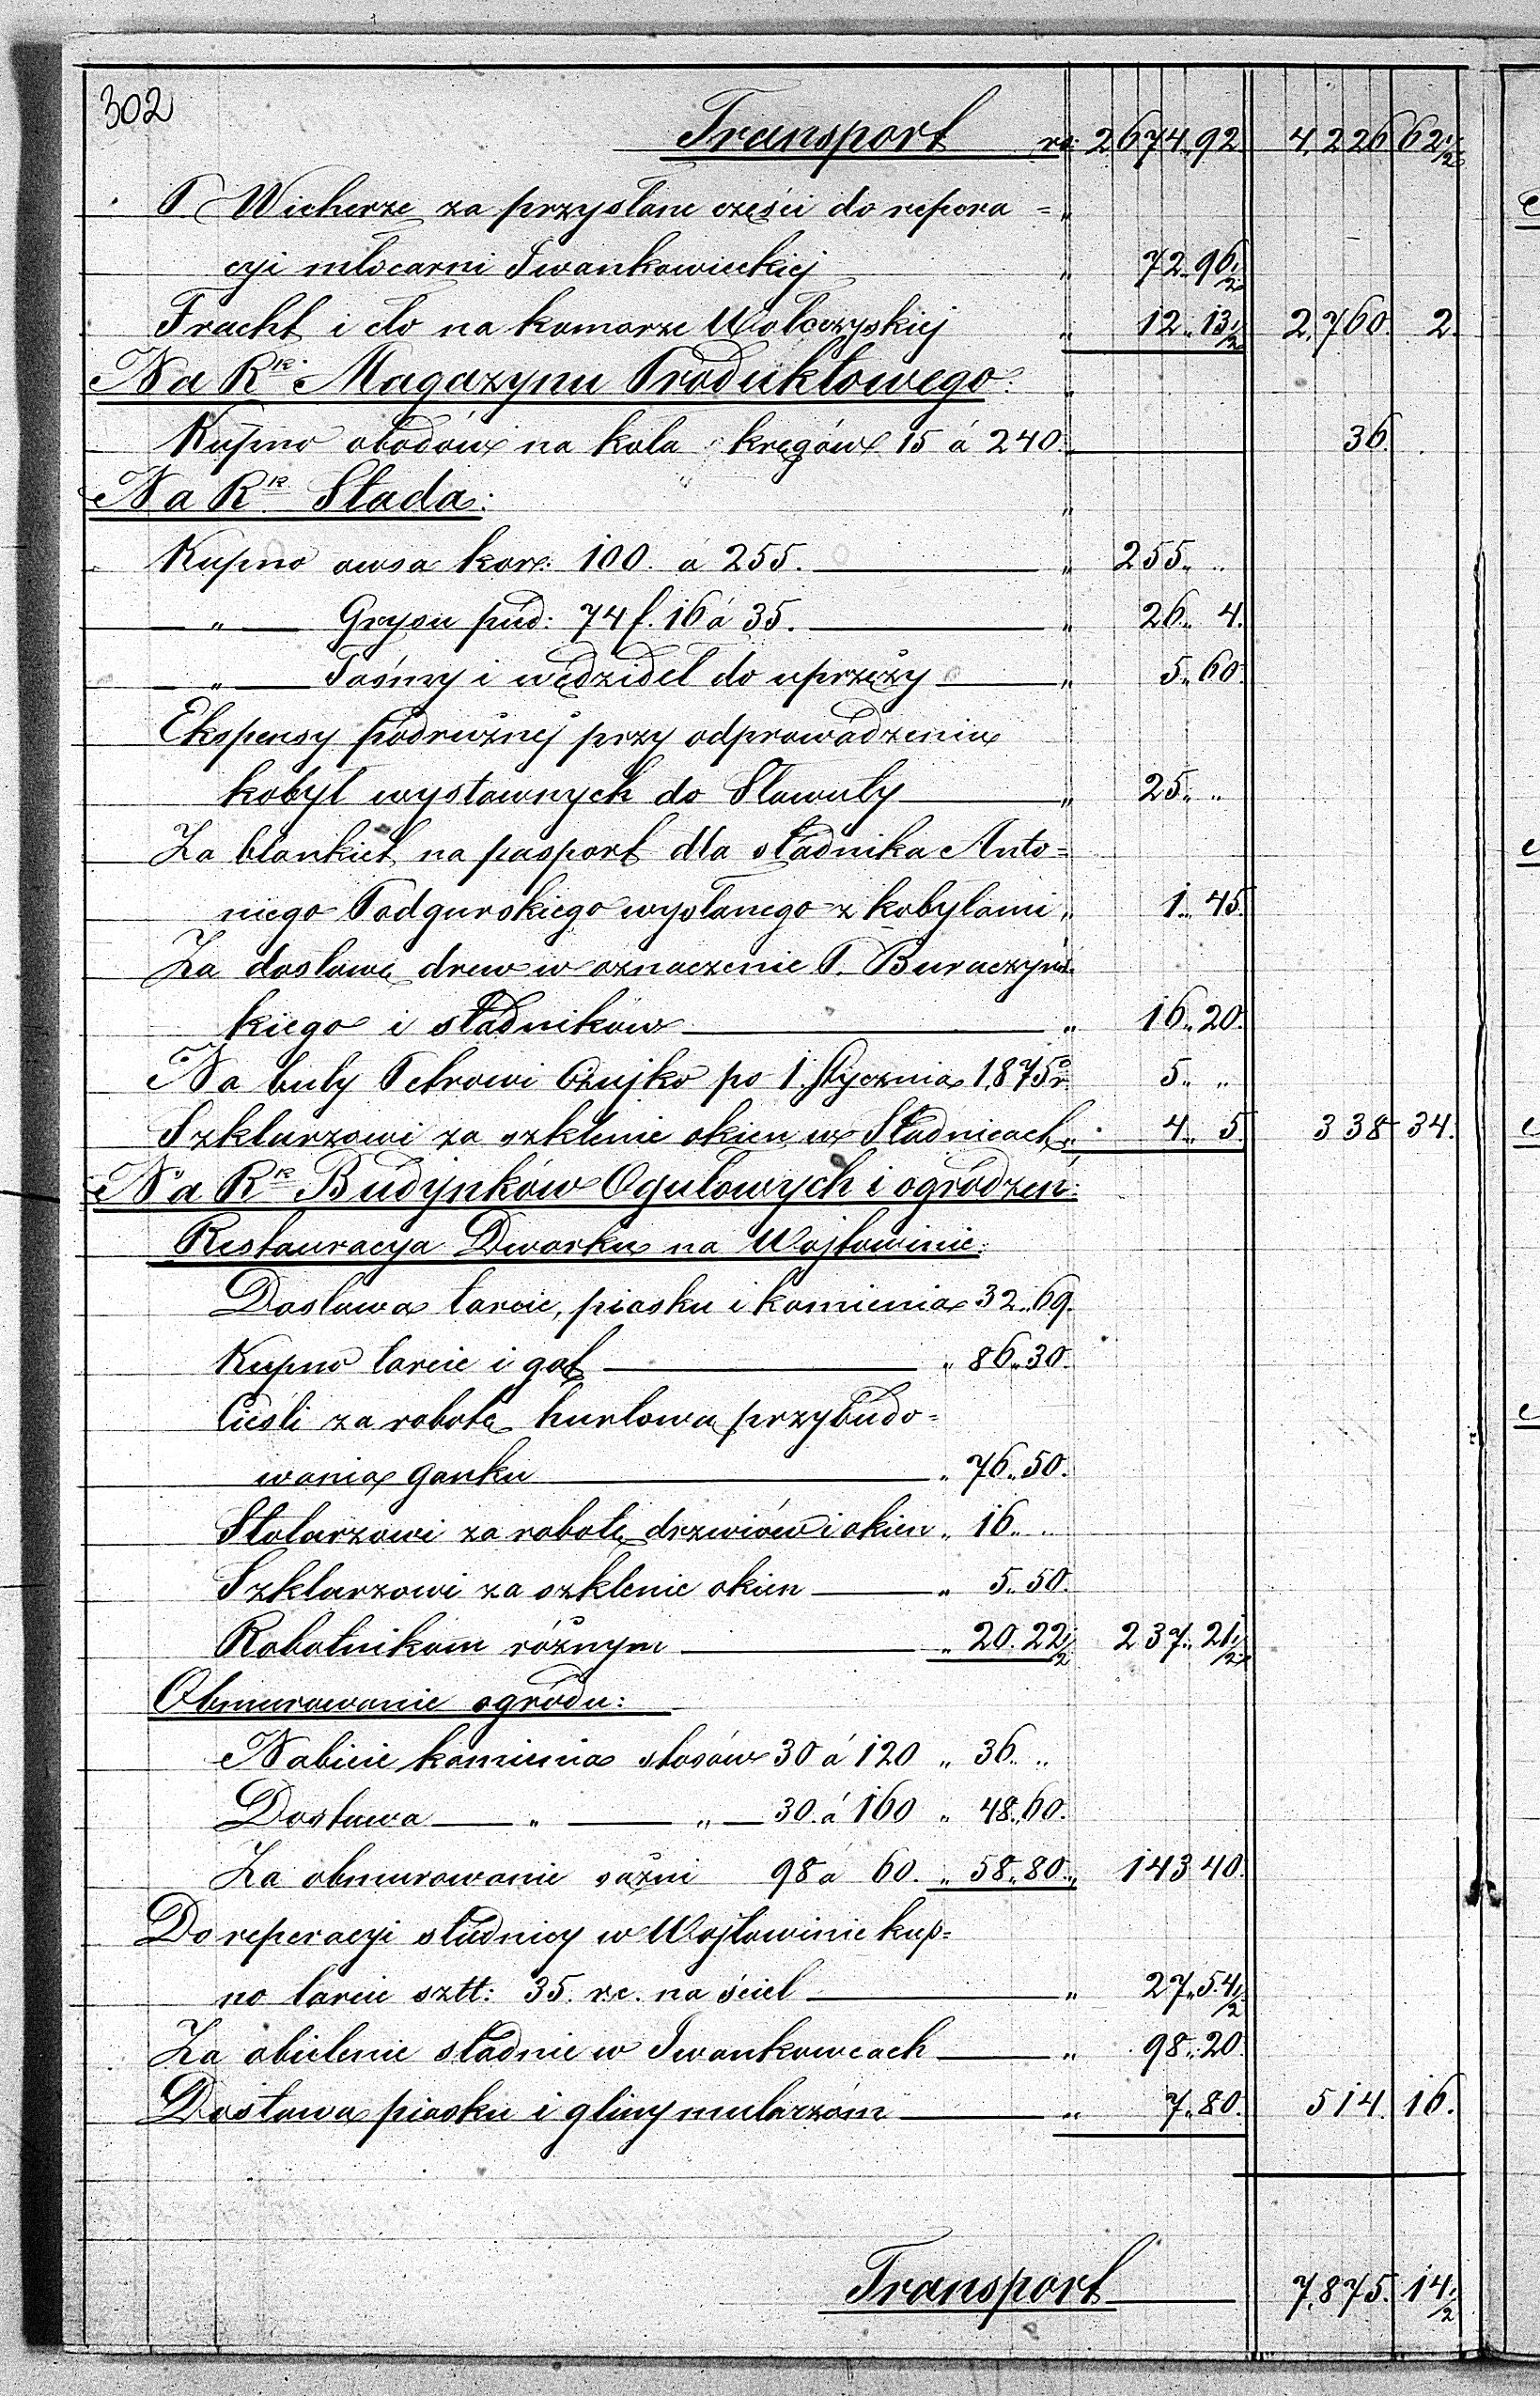 302
Transport rs: 2674„92. 4,226 62 1/2
P Wicherze za przysłane części do repera= „
cyi młocarni Iwankowieckiej „ 72„96 1/2
Fracht i cło na komorze Wołoczyskiej „ 12„13 1/2 2,760. 2.
Na Rk Magazynu Produktowego: „
Kupno obodów na koła „ kręgów 15 á 240. „ 36.
Na Rk Stada: „
Kupno owsa kor: 100. á 255. „ 255„ „
„ Grysu pud: 74 f. 16 á 35. „ 26„ 4.
„ Taśmy i wędzideł do uprzęży „ 5„60.
Ekspensy podrużnej przy odprowadzeniu
kobył wystawnych do Sławuty „ 25„ „
Za blankiet na pasport dla stadnika Anto=
niego Podgurskiego wysłanego z kobyłami „ 1„45.
Za dostawę drew w oznaczenie P. Buraczyńs
kiego i stadników „ 16„20.
Na buty Petrowi Czujko po 1 stycznia 1875 r. 5„ „
Szklarzowi za szklenie okien w Stadnicach „ 4„ 5. 338 34.
Na Rk Budynków Ogułowych i ogrodzeń:
Restauracya Dworku na Wojtowinie:
Dostawa tarcic, piasku i kamienia 32„69.
Kupno tarcic i gąt „ 86„30.
Cieśli za robotę hurtową przybudo=
wania ganku „ 76„50.
Stolarzowi za robotę drzwiów i okien „ 16„ „
Szklarzowi za szklenie okien „ 5„50.
Robotnikom różnym „ 20.22 1/2 237„21 1/2
Obmurowanie ogrodu:
Nabicie kamienia stosów 30 á 120 „ 36„ „
Dostawa „ „ 30. á 160 „ 48„60.
Za obmurowanie sążni 98 á 60. „ 58„80. „ 143 40.
Do reperacyi studnicy w Wojtowinie kup=
no tarcic sztt: 35. r.c. na ściel „ 27„54 1/2
Za obielenie stadnic w Iwankowcach „ 98„20.
Dostawa piasku i gliny mularzom „ 7„80. 514. 16.
Transport 7,875. 14 1/2